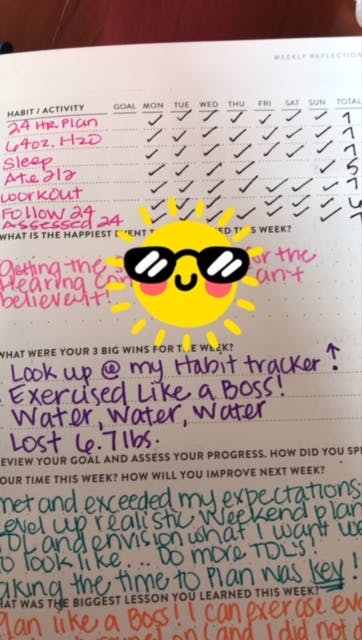 WEEKLY REFLECTION
HABIT / ACTIVITY GOAL MON TUE WED THU FRI SAT SUN TOTAL
24 HR Plan 7
64oz. H2O 7
Sleep 7
Ate 212 5
Workout 7
Follow 24
Assessed 24
WHAT IS THE HAPPIEST EVENT THIS WEEK?
Getting the for the
Hearing can't
believe it!
WHAT WERE YOUR 3 BIG WINS FOR THE WEEK?
Look up @ my Habit tracker ↑
Exercised Like a Boss!
Water, Water, Water
Lost 6.7lbs.
REVIEW YOUR GOAL AND ASSESS YOUR PROGRESS. HOW DID YOU SPE
OUR TIME THIS WEEK? HOW WILL YOU IMPROVE NEXT WEEK?
met and exceeded my expectations
evel up realistic Weekend plan
TDL and envision what I want we
to look like... Do more TDL's!
aking the time to Plan was key!
HAT WAS THE BIGGEST LESSON YOU LEARNED THIS WEEK?
Plan like a Boss! I can exercise eve
and I did not